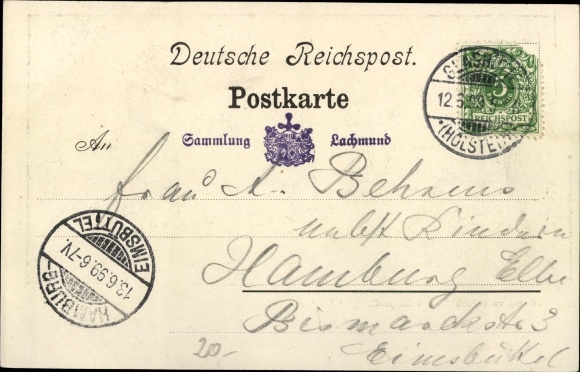 Deutsche Reichspost.
Postkarte
Sammlung Lachmund
An
Frau A. Behrens
nebst Kindern
Hamburg Elbe
Bismarckstr 3
Eimsbüttel
20-
REICHSPOST
12.6.99
(HOLSTEIN)
HAMBURG-
EIMSBÜTTEL
13.6.99.6-7V.